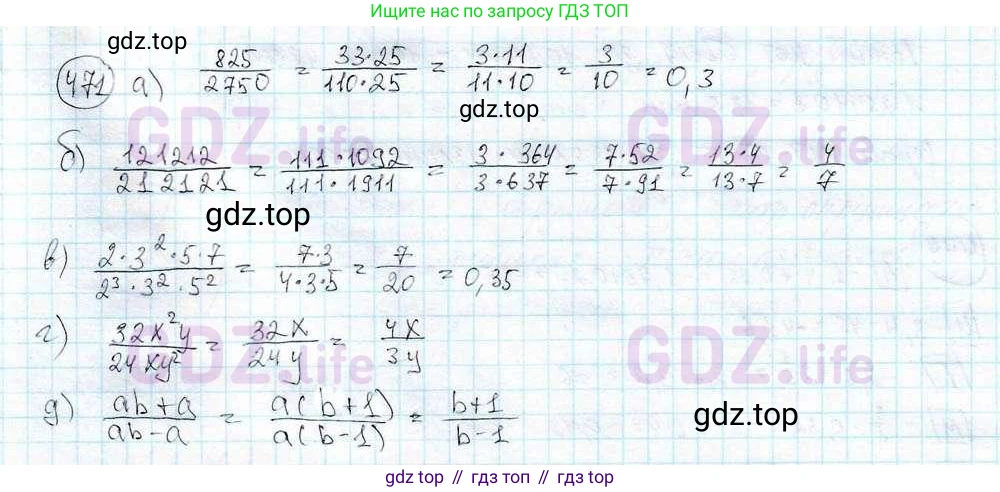 Ищите нас по запросу ГДЗ ТОП
gdz.top
471 а) 825/2750 = 33·25/110·25 = 3·11/11·10 = 3/10 = 0,3
GDZ.life GDZ.life
gdz.top
б) 121212/212121 = 111·1092/111·1911 = 3·364/3·637 = 7·52/7·91 = 13·4/13·7 = 4/7
gdz.top
в) 2·3²·5·7/2³·3²·5² = 7·3/4·3·5 = 7/20 = 0,35
г) 32x²y/24xy² = 32x/24y = 4x/3y
GDZ.life GDZ.life
д) ab+a/ab-a = a(b+1)/a(b-1) = b+1/b-1
gdz.top
gdz top // гдз топ // gdz.top